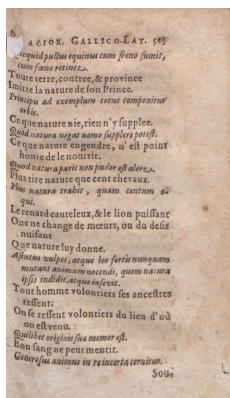 ACIOR. GALLICO-LAT. 503
quid pullus equinus cum freno sumit,
cum fœno retinet.
Toute terre, contree, & province
Imitte la nature de son Prince.
Principis ad exemplum totus componitur
orbis.
Ce que nature nie, rien n'y supplee.
Quod natura negat nemo supplere potest.
Ce que nature engendre, n'est point
honte de le nourrir.
Quod natura parit non pudor est alere.
Plus tire nature que cent chevaux.
Plus natura trahit, quam centum e-
qui.
Le renard cauteleux, & le lion puissant
One ne change de mœurs, ou du desir
nuisant
Que nature luy donne.
Astutus vulpes, atque leo fortis nunquam
mutant animum nocendi, quem natura
ipsis indidit, atque insevit.
Tout homme volontiers ses ancestres
ressent:
On se ressent volontiers du lieu d'où
on est venu.
Quilibet originis suæ memor est.
Bon sang ne peut mentir.
Generosus animus in re incerta cernitur.
Sou-